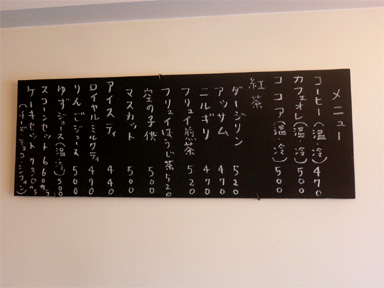 メニュー
コーヒー(温・冷) 470
カフェオレ(温・冷) 500
ココア(温・冷) 500
紅茶
ダージリン 520
アッサム 470
ニルギリ 470
フリュイ煎茶 520
フリュイほうじ茶 520
空の子供 500
マスカット 500
アイスティ 440
ロイヤルミルクティ 490
りんごジュース 500
ゆずジュース(温・冷) 500
スコーンセット 660から
ケーキセット 730から
(チーズ・チョコ・シフォン)